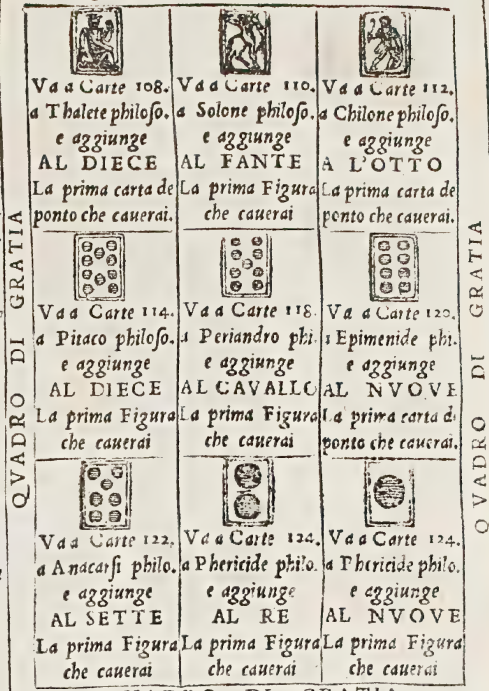 Va a Carte 108.
a Thalete philoso.
e aggiunge
AL DIECE
La prima carta de
ponto che cauerai.
Va a Carte 110.
a Solone philoso.
e aggiunge
AL FANTE
La prima Figura
che cauerai
Va a Carte 112.
a Chilone philoso.
e aggiunge
A L'OTTO
La prima carta de
ponto che cauerai.
Va a Carte 114.
a Pitaco philoso.
e aggiunge
AL DIECE
La prima Figura
che cauerai
Va a Carte 118.
a Periandro phi.
e aggiunge
AL CAVALLO
La prima Figura
che cauerai
Va a Carte 120.
a Epimenide phi.
e aggiunge
AL NVOVE
La prima carta di
ponto che cauerai.
Va a Carte 122.
a Anacarsi philo.
e aggiunge
AL SETTE
La prima Figura
che cauerai
Va a Carte 124.
a Phericide philo.
e aggiunge
AL RE
La prima Figura
che cauerai
Va a Carte 124.
a Phericide philo.
e aggiunge
AL NVOVE
La prima Figura
che cauerai
QVADRO DI GRATIA
QVADRO DI GRATIA
DI GRATIA